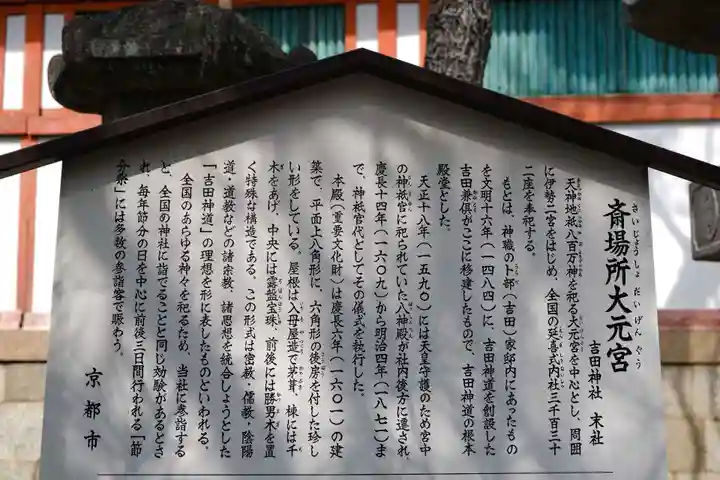 斎場所大元宮
さいじょうしょ だいげんぐう
吉田神社 末社
天神地祇八百万神を祀る大元宮を中心とし、周囲
に伊勢二宮をはじめ、全国の延喜式内社三千百三十
二座を奉祀する。
もとは、神職の卜部(吉田)家邸内にあったもの
を文明十六年(一四八四)に、吉田神道を創設した
吉田兼倶がここに移建したもので、吉田神道の根本
殿堂とした。
天正十八年(一五九〇)には天皇守護のため宮中
の神祇官に祀られていた八神殿が社内後方に遷され、
慶長十四年(一六〇九)から明治四年(一八七一)ま
で、神祇官代としてその儀式を執行した。
本殿(重要文化財)は慶長六年(一六〇一)の建
築で、平面上八角形に、六角形の後房を付した珍し
い形をしている。屋根は入母屋造で茅葺、棟には千
木をあげ、中央には露盤宝珠、前後には勝男木を置
く特殊な構造である。この形式は密教・儒教・陰陽
道・道教などの諸宗教、諸思想を統合しようとした
「吉田神道」の理想を形に表したものといわれる。
全国のあらゆる神々を祀るため、当社に参詣する
と、全国の神社に詣でることと同じ効験があるとさ
れ、毎年節分の日を中心に前後三日間行われる「節
分祭」には多数の参詣客で賑わう。
京都市